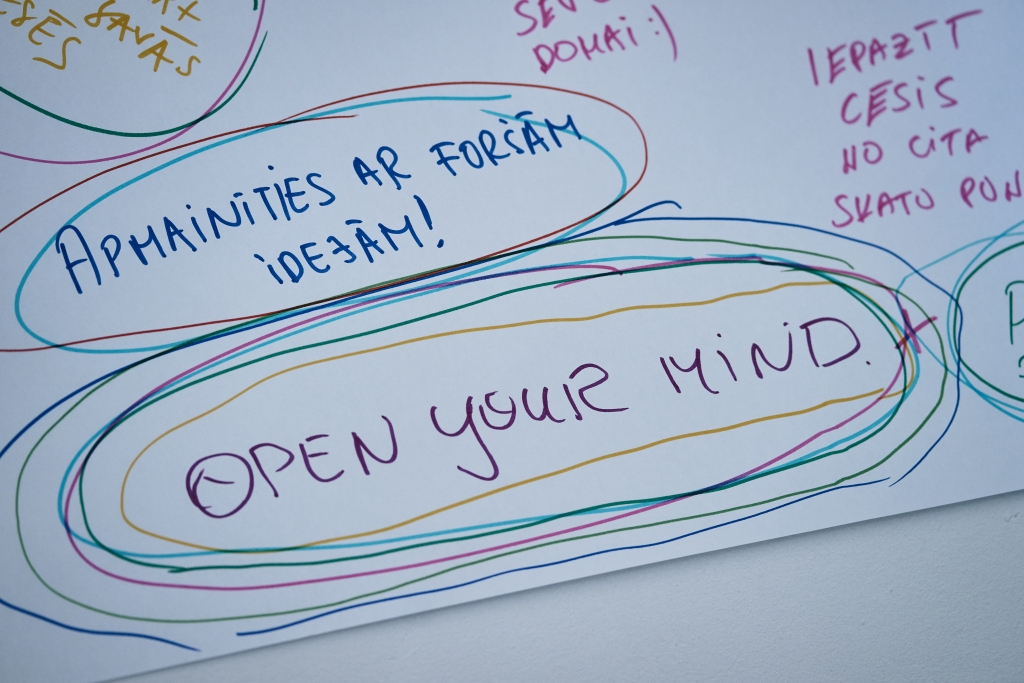 SAVAS
DOMAI :)
IEPAZĪT
CĒSIS
NO CITA
SKATU PUN
APMAINĪTIES AR FORŠĀM
IDEJĀM!
OPEN YOUR MIND.